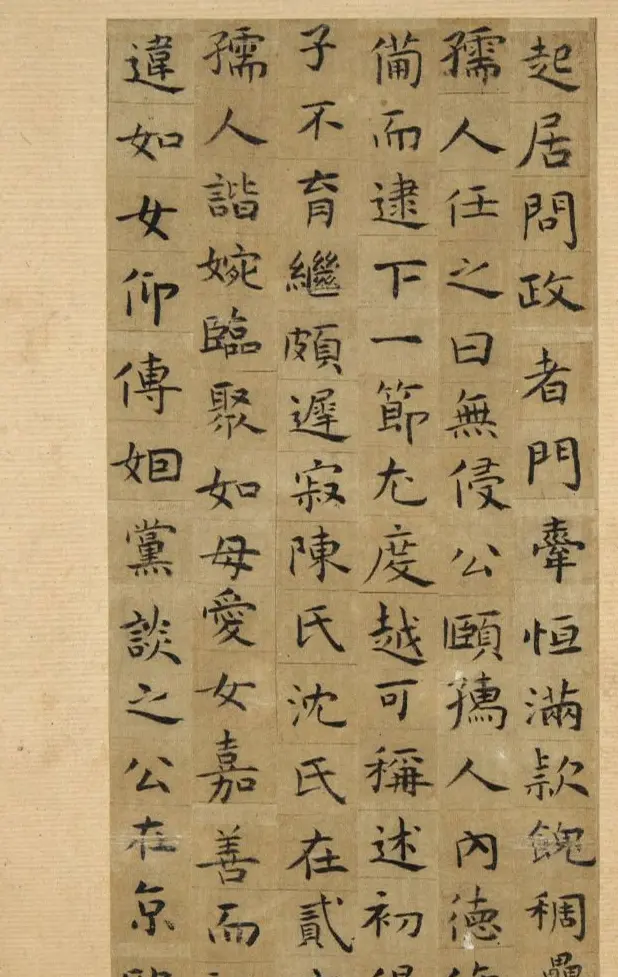 起居問政者門牽恒滿款餽稠疊
孺人任之曰無侵公頤孺人內德
備而逮下一節尤度越可稱述初
子不育繼頗遲寂陳氏沈氏在貳
孺人諧婉臨聚如母愛女嘉善而
違如女仰傅姆黨談之公在京